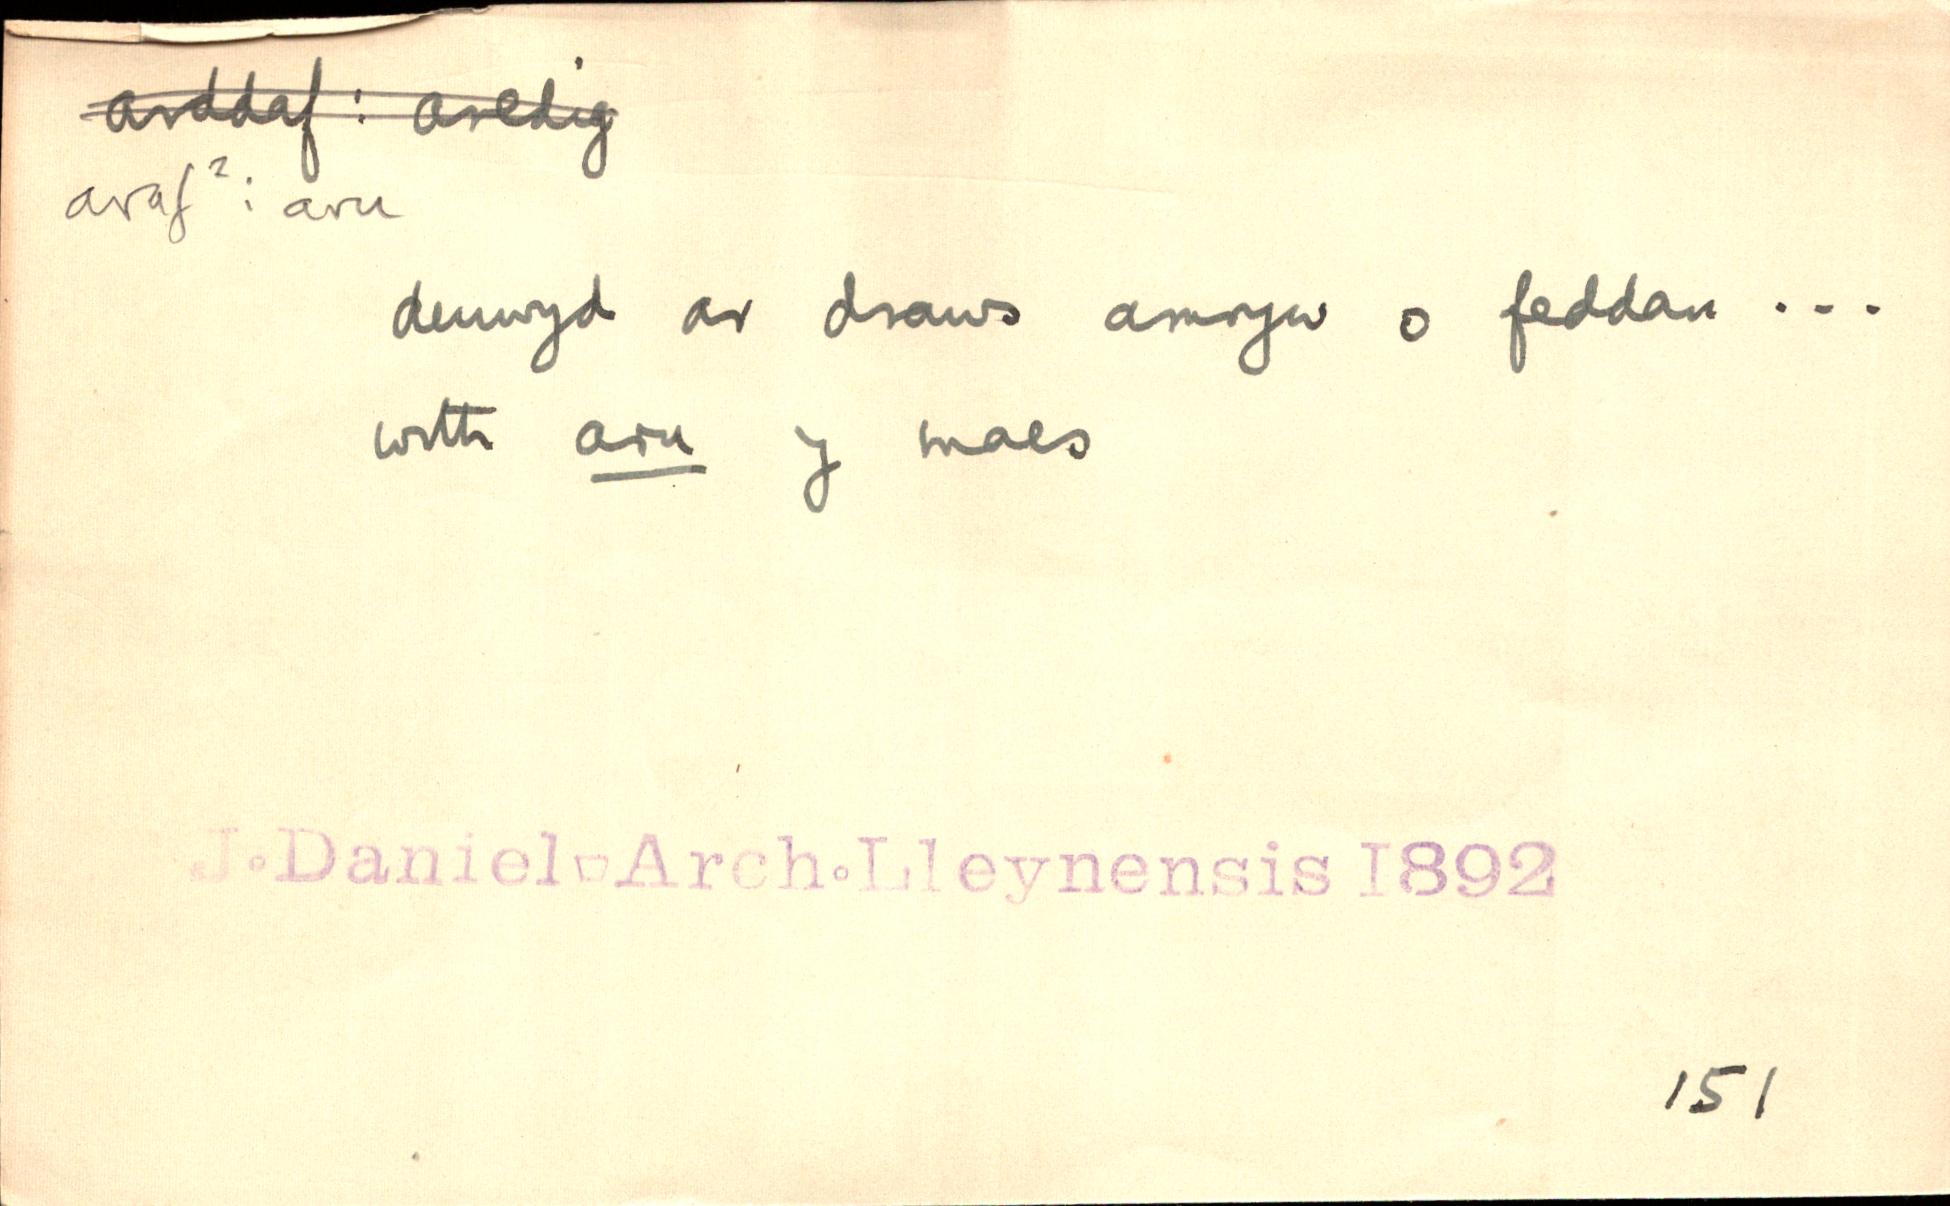 arddaf : aredig
araf² : aru
deuwyd ar draws amryw o feddau ...
wrth aru y maes
J. Daniel: Arch. Lleynensis 1892
151